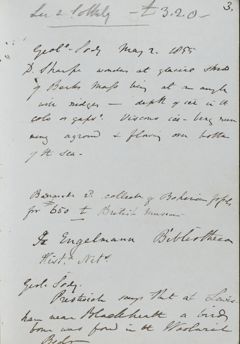 £3.20-
3.
Geol. Socy May 2. 1855
D. Sharpe wonders at glacial
of being at an angle
with ridges — depth of ice in
cols or gaps. Viscous ice - berg run
ning aground & flowing over bottom
of the sea.
Barrande's collectn of Bohemian fossils
for 650 £ British Museum
Engelmann Bibliotheca
Hist. Nat.
Geol. Socy.
Prestwich says that at Lewis
ham near Blackheath a bird's
bone was found in the Woolwich
Beds